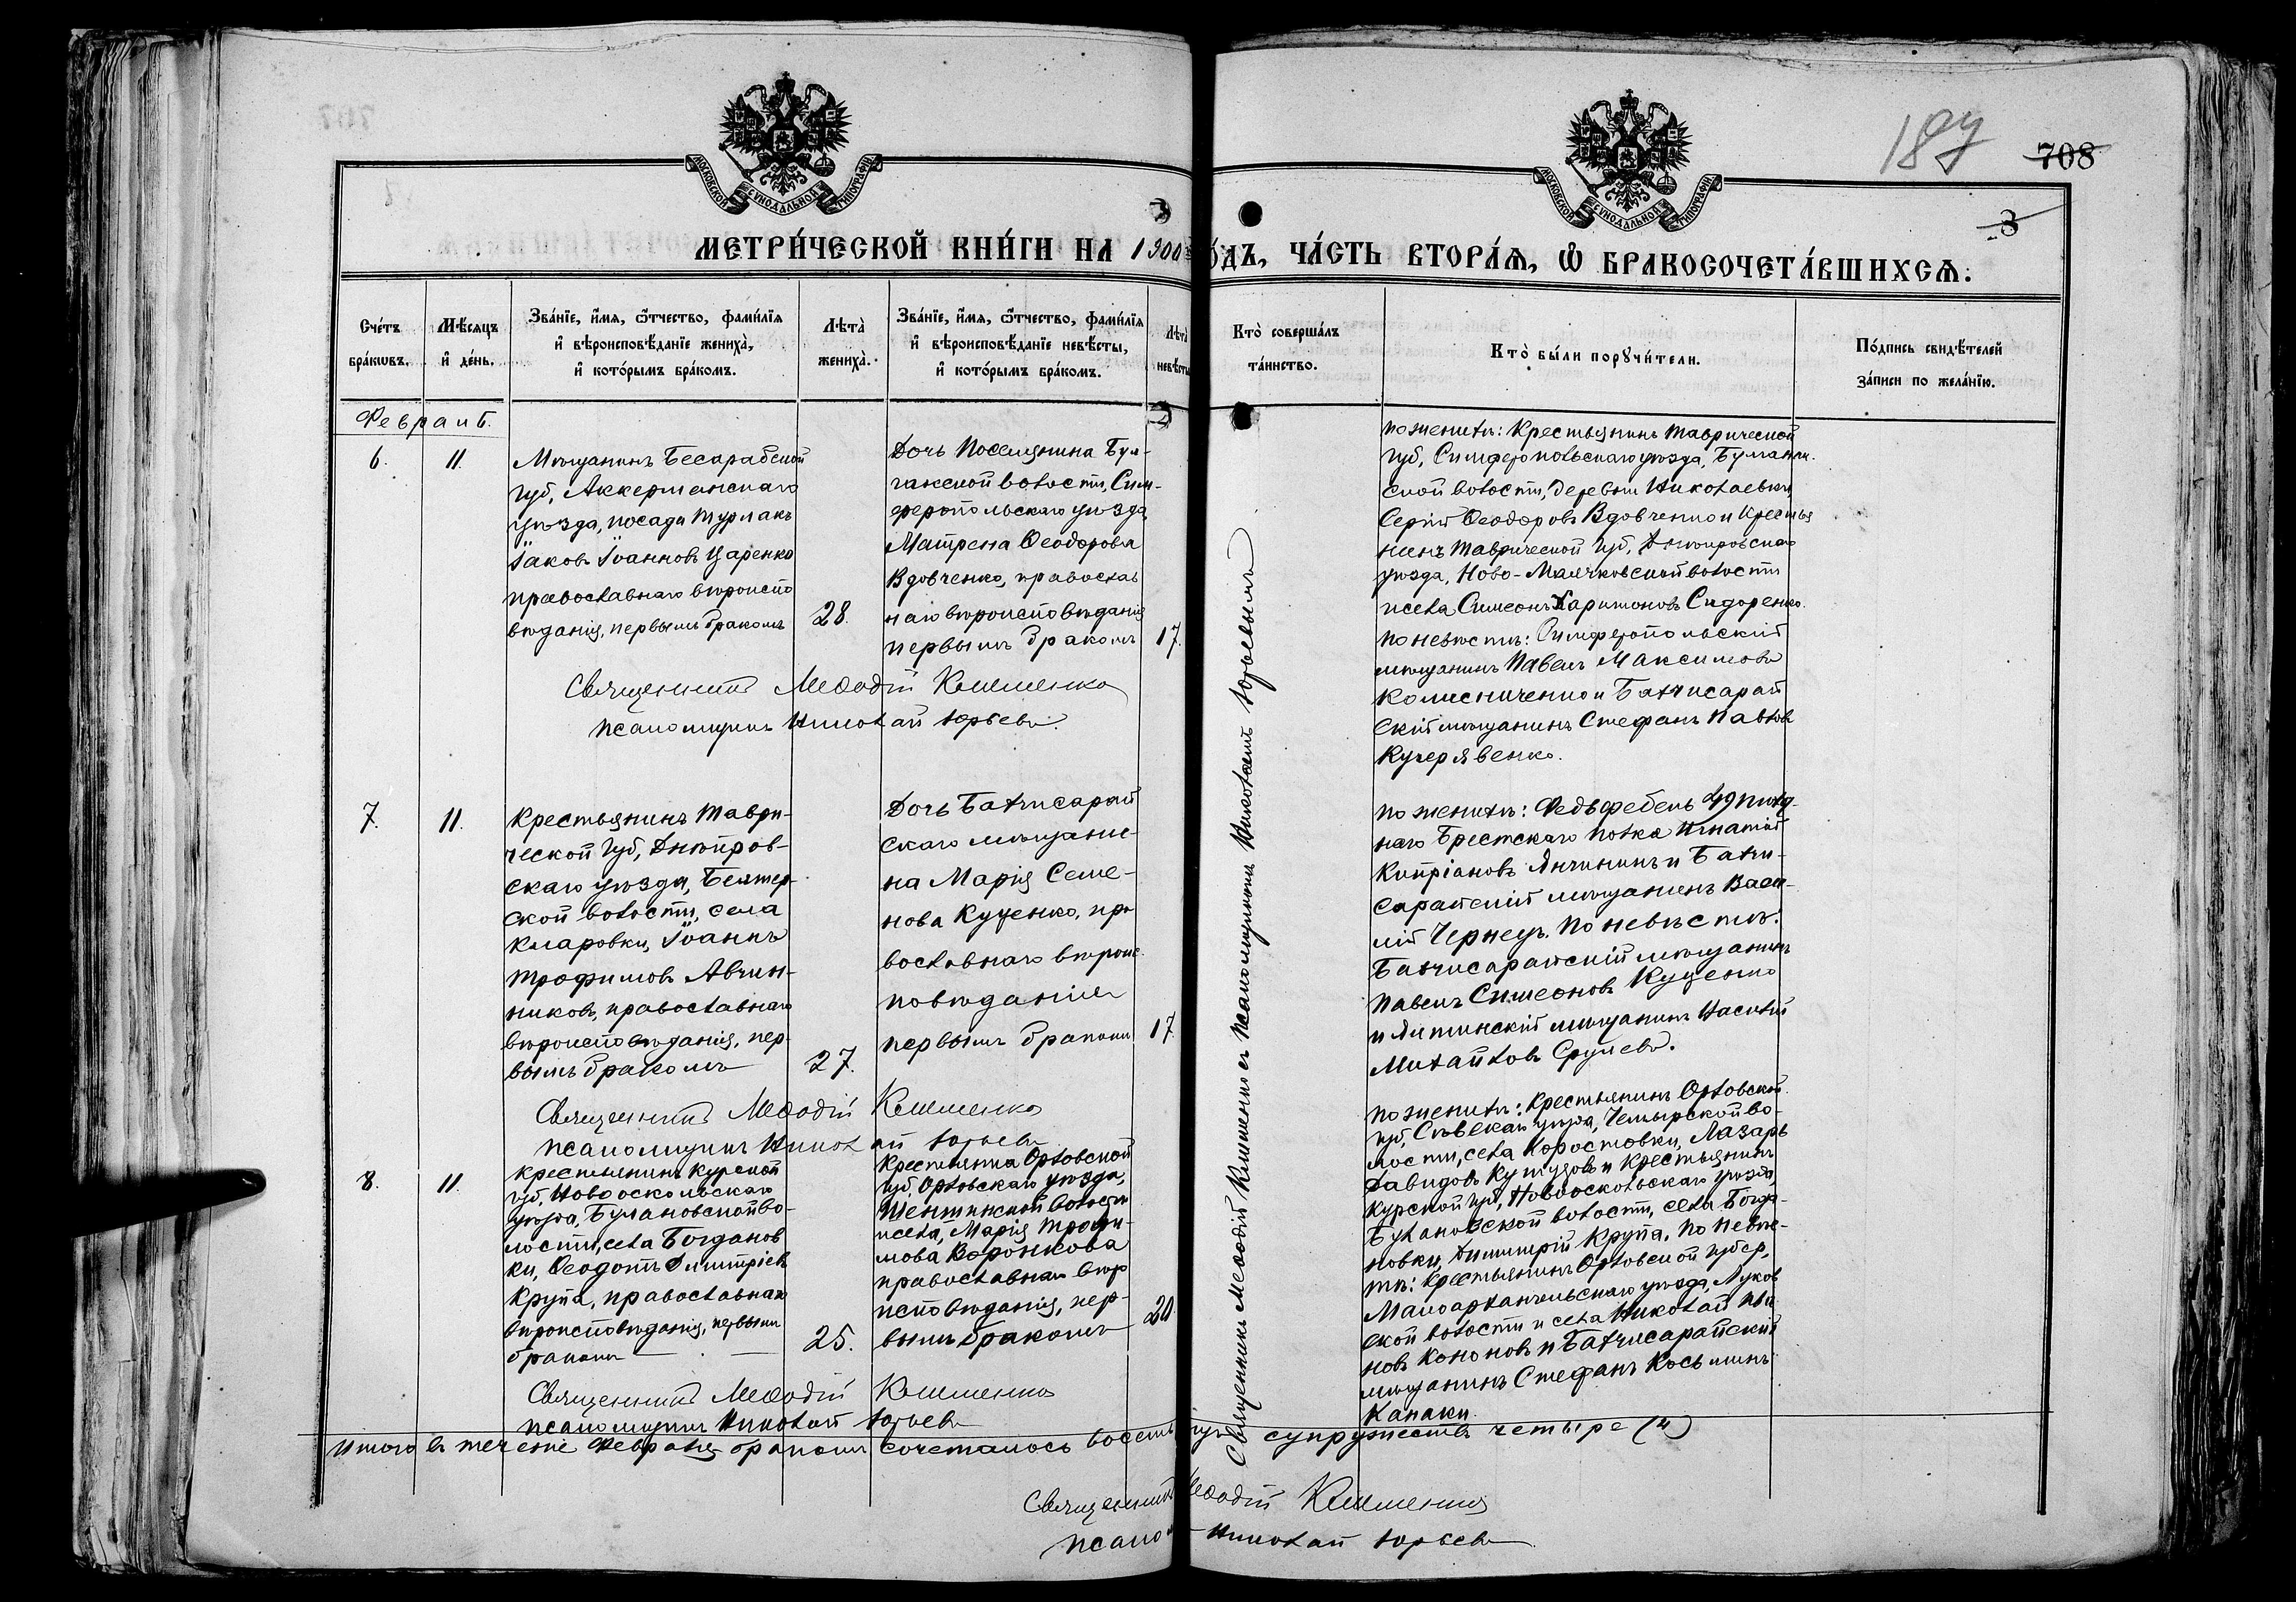 МОСКОВСКОЙ СѴНОДАЛЬНОЙ ТИПОГРАФІИ
МОСКОВСКОЙ СѴНОДАЛЬНОЙ ТИПОГРАФІИ
708
3
МЕТРИ́ЧЕСКОЙ КНИ́ГИ НА 1900 ГО́ДЪ, ЧА́СТЬ ВТОРА́Ѧ, Ѽ БРАКОСОЧЕТА́ВШИХСѦ.
Сче́тъ бра́кѡвъ.
Мѣ́сяцъ и҆ де́нь.
Зва́нїе, и҆́мѧ, ѻ҆́тчество, фами́лїѧ
и҆ вѣроисповѣ́данїе жениха̀,
и҆ кото́рымъ бра́комъ.
Лѣта̀ жениха̀.
Зва́нїе, и҆́мѧ, ѻ҆́тчество, фами́лїѧ
и҆ вѣроисповѣ́данїе невѣ́сты,
и҆ кото́рымъ бра́комъ.
Лѣта̀ невѣ́сты
Кто̀ соверша́лъ та́инство.
Кто̀ бы́ли порꙋчи́тели.
По́дпись свидѣ́телей за́писи по жела́нїю.
Февраль.
6.
11.
Мѣщанинъ Бесарабской
губ, Аккерманскаго
уѣзда, посада Турлакъ
Іаковъ Іоанновъ Царенко
православнаго вѣроиспо
вѣданія, первымъ бракомъ
28.
Дочь Поселянина Бул-
ганской волости, Сим-
феропольскаго уѣзда,
Матрена Ѳеодорова
Вдовченко, православ
наго вѣроисповѣданія
первымъ бракомъ
17.
По женихѣ: Крестьянинъ Таврической
губ, Симферопольскаго уѣзда, Булган
ской волости, деревни Николаевки,
Сергій Ѳеодоровъ Вдовченко и Крестья
нинъ Таврической губ, Днѣпровскаго
уѣзда, Ново-Маячковской волости
и села Симеонъ Харитоновъ Сидоренко.
По невѣстѣ: Симферопольскій
мѣщанинъ Павелъ Максимовъ
Колесниченко и Бахчисарай
скій мѣщанинъ Стефанъ Павловъ
Кучерявенко.
Священникъ Меѳодій Клименко
псаломщикъ Николай Юрьевъ.
7.
11.
Крестьянинъ Таври-
ческой губ, Днѣпров-
скаго уѣзда, Бехтер-
ской волости, села
Кларовки, Іоаннъ
Трофимовъ Авчин-
никовъ, православнаго
вѣроисповѣданія, пер-
вымъ бракомъ
27.
Дочь Бахчисарай
скаго мѣщани-
на Марія Семе-
нова Куценко, пра
вославнаго вѣроис
повѣданія
первымъ бракомъ
17.
По женихѣ: Федьфебель 49 пѣхд-
наго Брестскаго полка Игнатій
Кипріановъ Янчининъ и Бахчи-
сарайскій мѣщанинъ Васи-
лій Чернецъ. По невѣстѣ:
Бахчисарайскій мѣщанинъ
Павелъ Симеоновъ Куценко
и Ялтинскій мѣщанинъ
Михайловъ
Священникъ Меѳодій Клименко
псаломщикъ Николай Юрьевъ
8.
11.
Крестьянинъ Курской
губ, Новооскольскаго
уѣзда, Булановской во-
лости, села Богданов
ки, Ѳеодотъ Димитріевъ
Крупа, православнаго
вѣроисповѣданія, первымъ
бракомъ
25.
Крестьянка Орловской
губ, Орловскаго уѣзда,
волости
и села, Марія Трофи-
мова Воронкова
православнаго вѣр
исповѣданія, пер-
вымъ бракомъ
20
По женихѣ: Крестьянинъ Орловской
губ, Сѣвскаго уѣзда, во-
лости, села Коростовки, Лазарь
Давидовъ и Крестьянинъ
Курской губ, Новооскольскаго уѣзда,
Булановской волости, села Богда-
новки, Димитрій Крупа. По невѣс-
тѣ: Крестьянинъ Орловской губер,
Малоархангельскаго уѣзда, Луков
ской волости и села Николай
новъ Кононовъ и Бахчисарайскій
мѣщанинъ Стефанъ Косьминъ
Канаки.
Священникъ Меѳодій Клименко
псаломщикъ Николай Юрьевъ
Священникъ Меѳодій Клименко съ псаломщикомъ Николаемъ Юрьевымъ
Итого въ теченіе Февраля бракомъ сочеталось восемь супружествъ четыре (4)
Священникъ Меѳодій Клименко
псалом Николай Юрьевъ